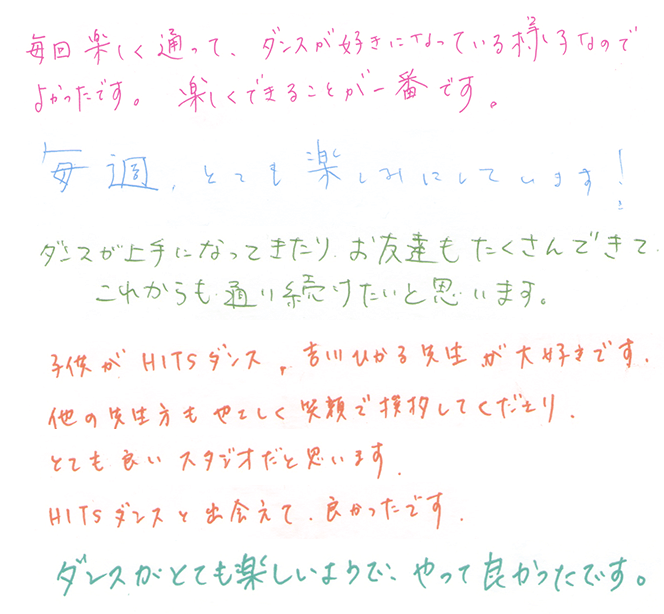 毎回楽しく通って、ダンスが好きになっている様子なので
よかったです。 楽しくできることが一番です。
毎週、とても楽しみにしています!
ダンスが上手になってきたり、お友達もたくさんできて
これからも通り続けたいと思います。
子供がHITSダンス、吉川ひかる先生が大好きです。
他の先生方もやさしく笑顔で挨拶してくださり、
とても良いスタジオだと思います。
HITSダンスと出会えて、良かったです。
ダンスがとても楽しいようで、やって良かったです。